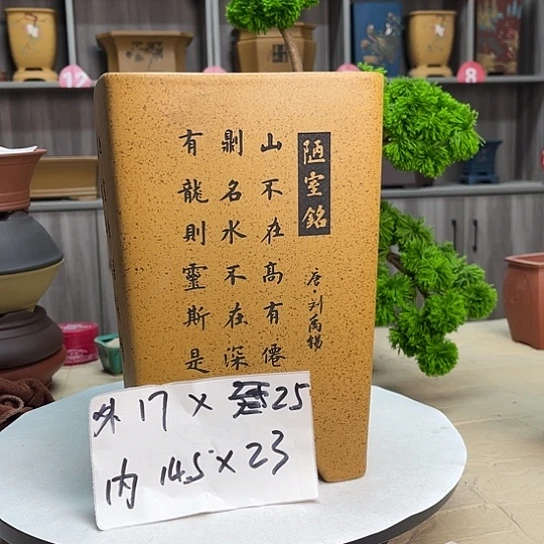 陋室銘
唐·刘禹锡
山不在高有僊
則名水不在深
有龍則靈斯是
外 17 × 25
内 14.5 × 23
12
8